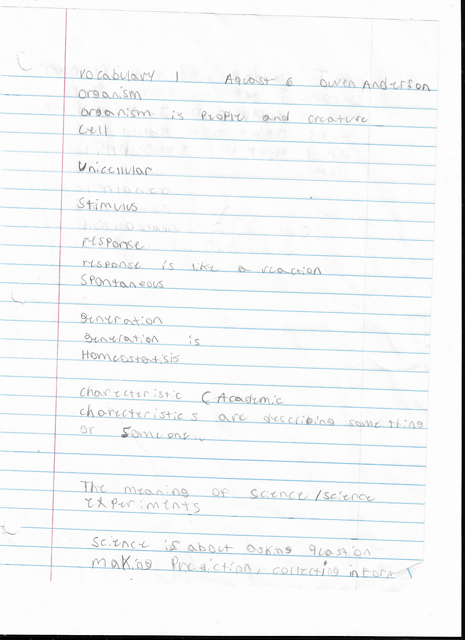 Vocabulary 1 Aguast 6 Owen Anderson
Organism
Organism is people and creature
Cell
Unicellular
Stimulus
response
response is like a reaction
Spontaneous
generation
generation is
Homeostatisis
characteristic (Academic
characteristics are describing something
or Someone..
The meaning of science/science
experiments
Science is about asking qeastion
making Prediction, collecting inform